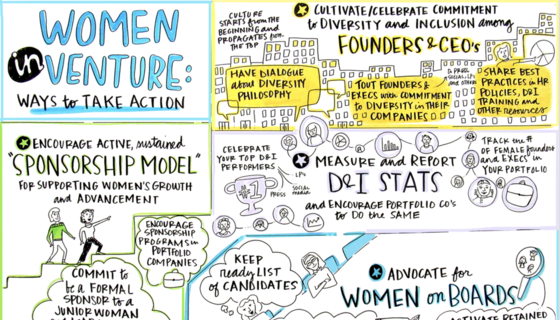 WOMEN
in
VENTURE:
WAYS to TAKE ACTION
CULTURE
STARTS from the
BEGINNING and
PROPAGATES from
the TOP
CULTIVATE/CELEBRATE COMMITMENT
to DIVERSITY and INCLUSION among
FOUNDERS & CEO's
HAVE DIALOGUE
about DIVERSITY
PHILOSOPHY
TOUT FOUNDERS &
EXECS with COMMITMENT
to DIVERSITY in THEIR
COMPANIES
SOCIAL, LPs
and OTHERS
SHARE BEST
PRACTICES in HR
POLICIES, D&I
TRAINING and
other resources
ENCOURAGE ACTIVE, sustained
"SPONSORSHIP MODEL"
FOR SUPPORTING WOMEN'S GROWTH
and ADVANCEMENT
ENCOURAGE
SPONSORSHIP
PROGRAMS in
PORTFOLIO
COMPANIES
COMMIT to
be a FORMAL
SPONSOR to a
JUNIOR WOMAN
CELEBRATE
YOUR TOP D&I
PERFORMERS
#1
LPs
PRESS
SOCIAL
media
MEASURE and REPORT
D&I STATS
and ENCOURAGE PORTFOLIO CO's
to DO the SAME
TRACK the #
OF FEMALE founders
and EXECS in
YOUR PORTFOLIO
KEEP
ready LIST
of CANDIDATES
ADVOCATE for
WOMEN on BOARDS
ACTIVATE RETAINED